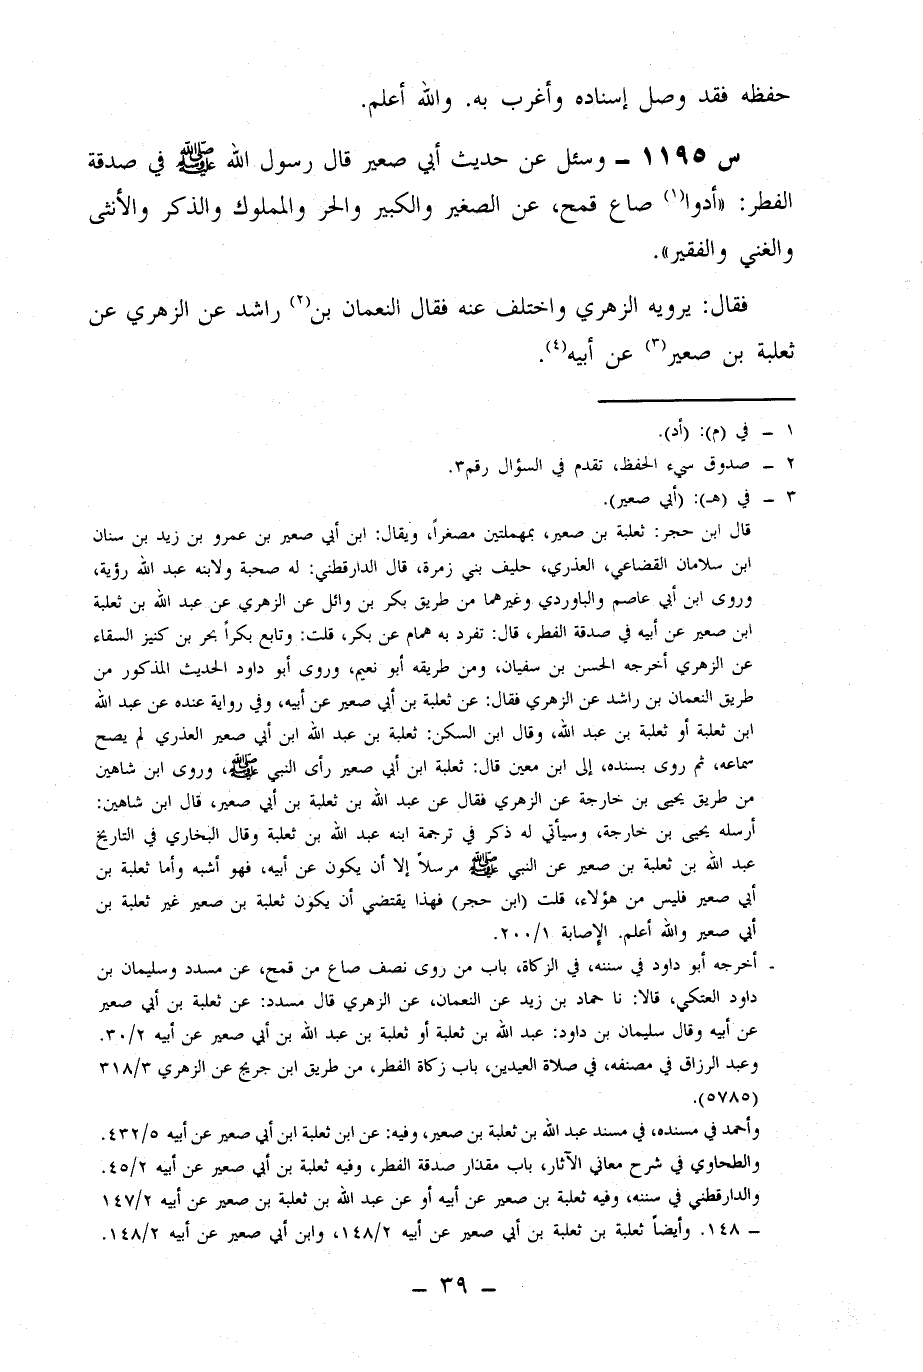 حفظه فقد وصل إسناده وأغرب به. والله أعلم.
س ١١٩٥ ـ وسئل عن حديث أبي صعير قال رسول الله ﷺ في صدقة
الفطر: «أدوا(١) صاع قمح، عن الصغير والكبير والحر والمملوك والذكر والأنثى
والغني والفقير».
فقال: يرويه الزهري واختلف عنه فقال النعمان بن(٢) راشد عن الزهري عن
ثعلبة بن صعير(٣) عن أبيه(٤).
١ ـ في (م): (أد).
٢ ـ صدوق سيء الحفظ، تقدم في السؤال رقم٣.
٣ ـ في (هـ): (أبي صعير).
قال ابن حجر: ثعلبة بن صعير، بمهملتين مصغراً، ويقال: ابن أبي صعير بن عمرو بن زيد بن سنان
ابن سلامان القضاعي، العذري، حليف بني زمرة، قال الدارقطني: له صحبة ولابنه عبد الله رؤية،
وروى ابن أبي عاصم والباوردي وغيرهما من طريق بكر بن وائل عن الزهري عن عبد الله بن ثعلبة
ابن صعير عن أبيه في صدقة الفطر، قال: تفرد به همام عن بكر، قلت: وتابع بكراً بحر بن كنيز السقاء
عن الزهري أخرجه الحسن بن سفيان، ومن طريقه أبو نعيم، وروى أبو داود الحديث المذكور من
طريق النعمان بن راشد عن الزهري فقال: عن ثعلبة بن أبي صعير عن أبيه، وفي رواية عنده عن عبد الله
ابن ثعلبة أو ثعلبة بن عبد الله، وقال ابن السكن: ثعلبة بن عبد الله ابن أبي صعير العذري لم يصح
سماعه، ثم روى بسنده، إلى ابن معين قال: ثعلبة ابن أبي صعير رأى النبي ﷺ، وروى ابن شاهين
من طريق يحيى بن خارجة عن الزهري فقال عن عبد الله بن ثعلبة بن أبي صعير، قال ابن شاهين:
أرسله يحيى بن خارجة، وسيأتي له ذكر في ترجمة ابنه عبد الله بن ثعلبة وقال البخاري في التاريخ
عبد الله بن ثعلبة بن صعير عن النبي ﷺ مرسلاً إلا أن يكون عن أبيه، فهو أشبه وأما ثعلبة بن
أبي صعير فليس من هؤلاء، قلت (ابن حجر) فهذا يقتضي أن يكون ثعلبة بن صعير غير ثعلبة بن
أبي صعير والله أعلم. الإصابة ٢٠٠/١.
ـ أخرجه أبو داود في سننه، في الزكاة، باب من روى نصف صاع من قمح، عن مسدد وسليمان بن
داود العتكي، قالا: نا حماد بن زيد عن النعمان، عن الزهري قال مسدد: عن ثعلبة بن أبي صعير
عن أبيه وقال سليمان بن داود: عبد الله بن ثعلبة أو ثعلبة بن عبد الله بن أبي صعير عن أبيه ٣٠/٢.
وعبد الرزاق في مصنفه، في صلاة العيدين، باب زكاة الفطر، من طريق ابن جريج عن الزهري ٣١٨/٣
(٥٧٨٥).
وأحمد في مسنده، في مسند عبد الله بن ثعلبة بن صعير، وفيه: عن ابن ثعلبة ابن أبي صعير عن أبيه ٤٣٢/٥.
والطحاوي في شرح معاني الآثار، باب مقدار صدقة الفطر، وفيه ثعلبة بن أبي صعير عن أبيه ٤٥/٢.
والدارقطني في سننه، وفيه ثعلبة بن صعير عن أبيه أو عن عبد الله بن ثعلبة بن صعير عن أبيه ١٤٧/٢
ـ ١٤٨. وأيضاً ثعلبة بن ثعلبة بن أبي صعير عن أبيه ١٤٨/٢، وابن أبي صعير عن أبيه ١٤٨/٢.
ـ ٣٩ ـ